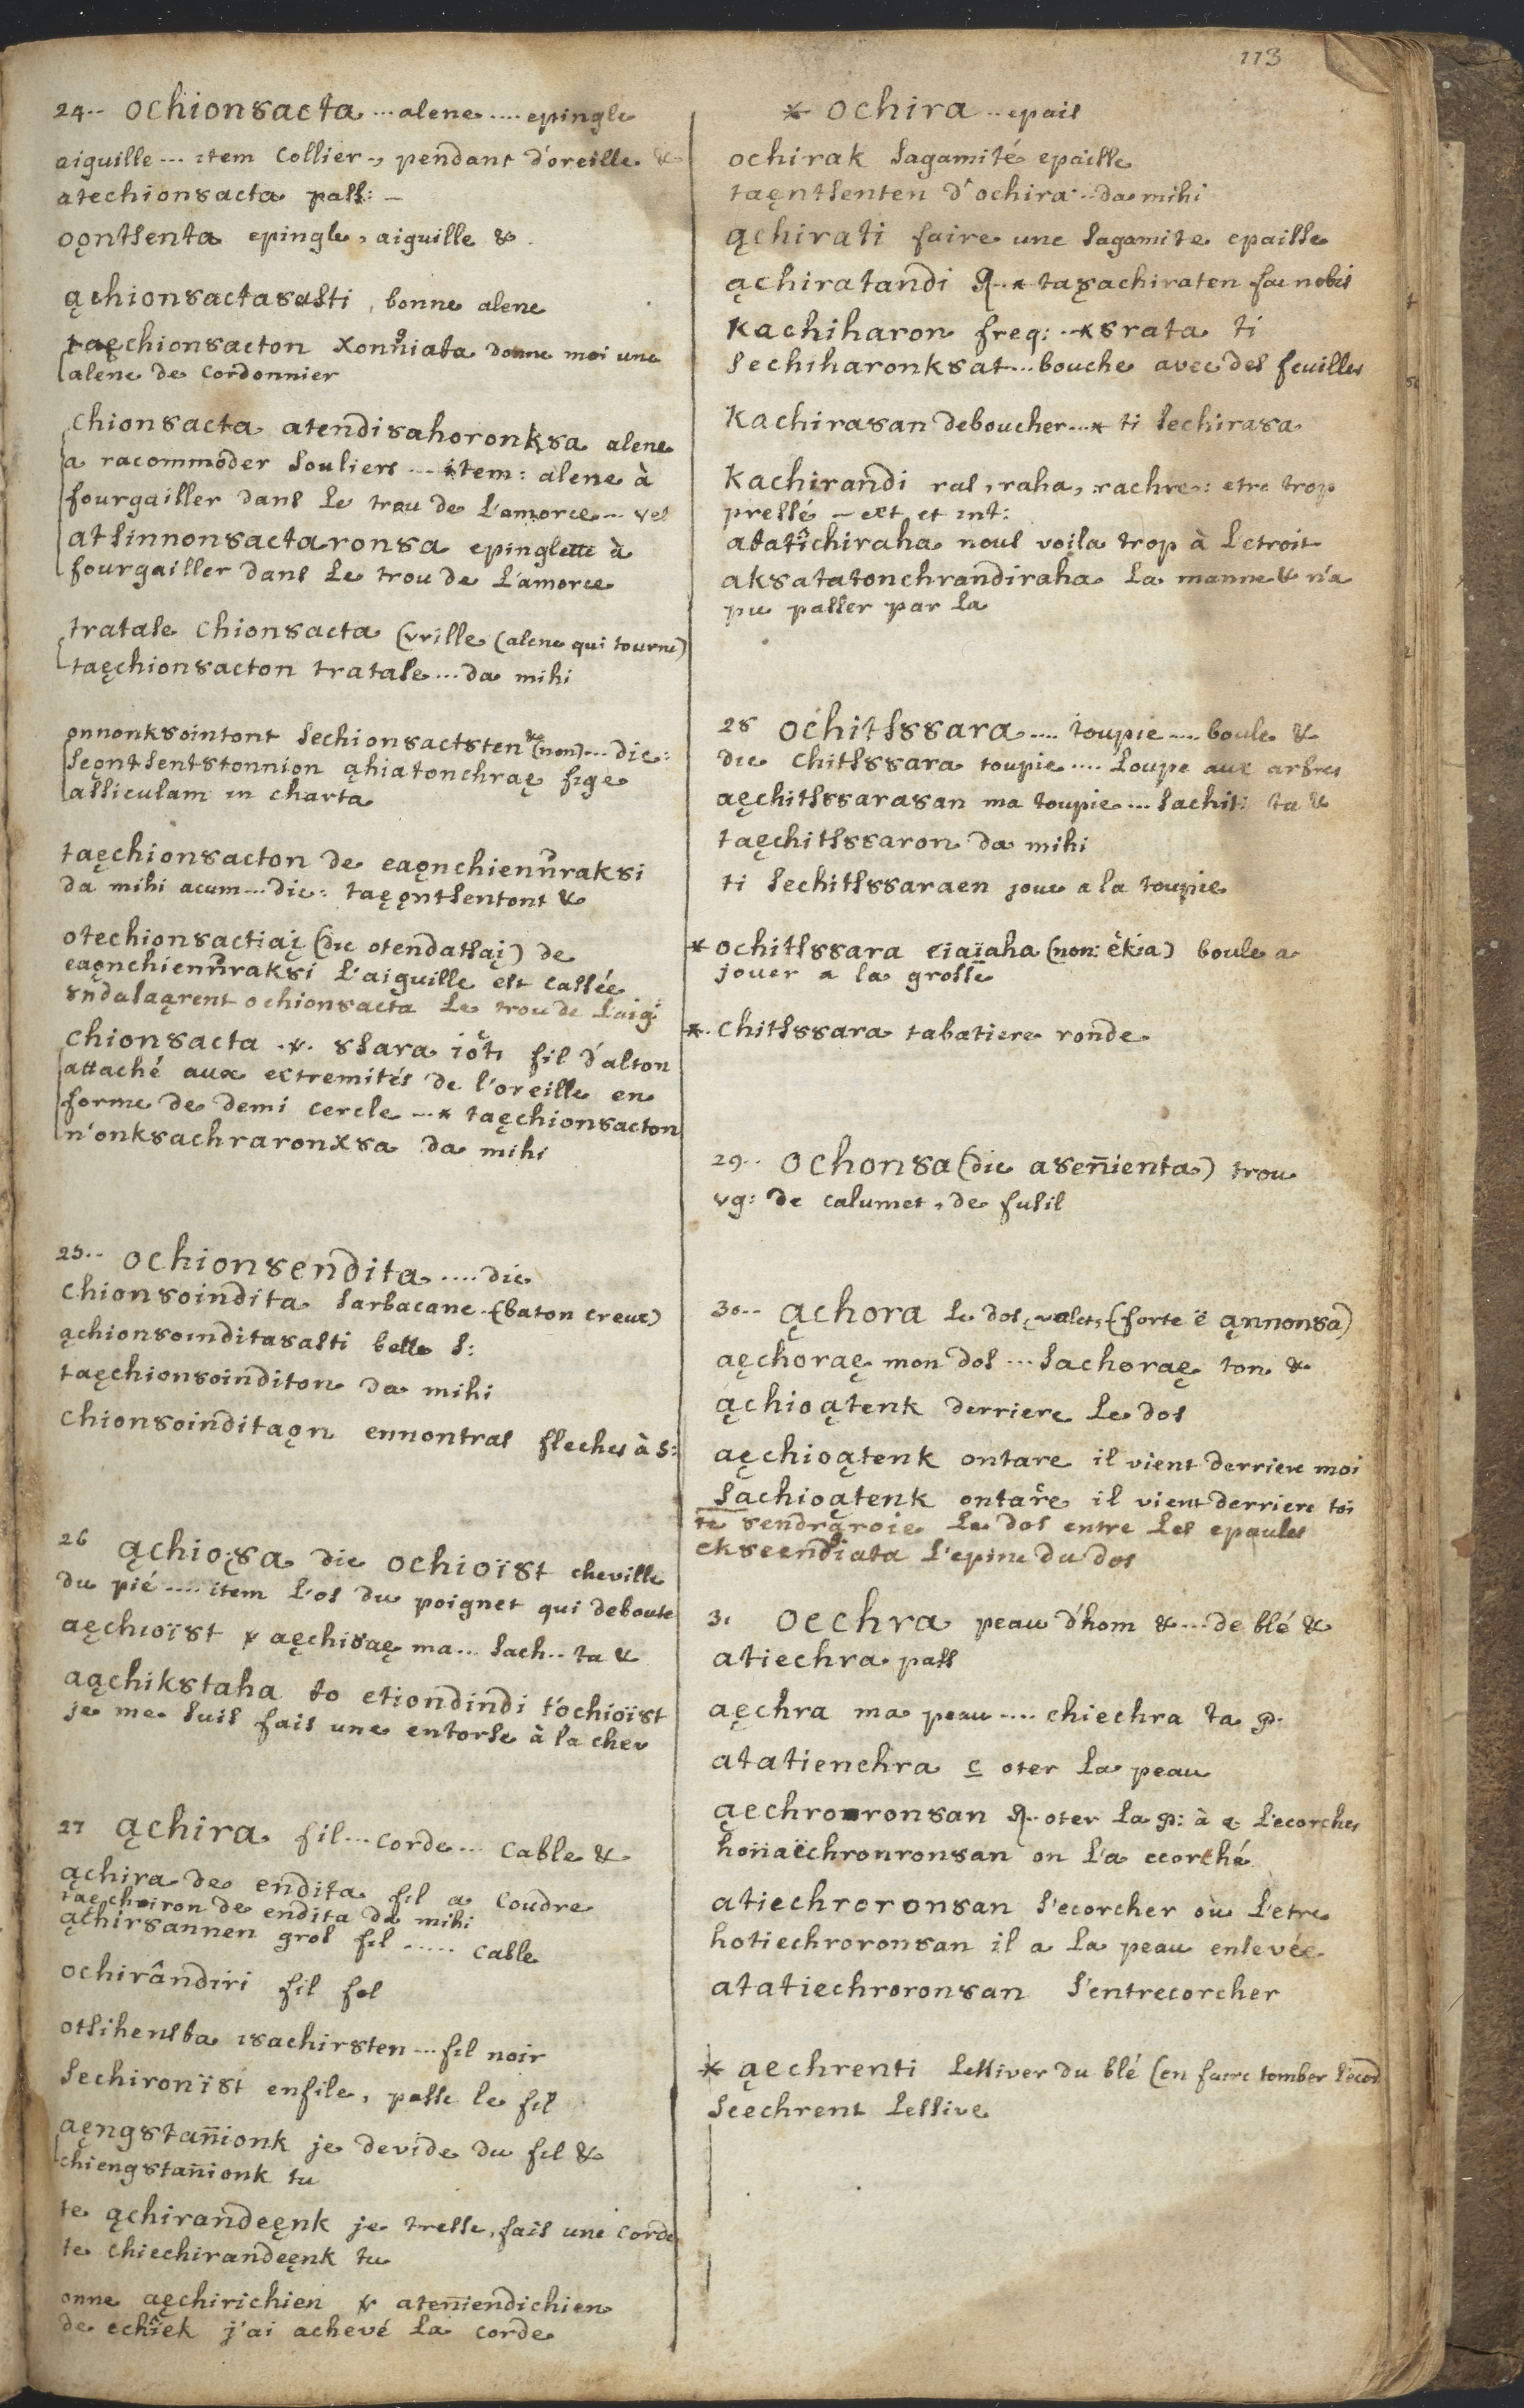 113
24.. ochionȣacta ... alene .... epingle
aiguille ... item collier, pendant d'oreille &
atechionȣacta pass: —
oo̧ntsenta epingle, aiguille &.
a̧chionȣactaȣasti, bonne alene
taȩchionȣacton xonn̄iata donne moi une
alene de cordonnier
chionȣacta atendiȣahoronkȣa alene
a racommoder souliers ... item: alene à
fourgailler dans le trou de l'amorce ... vel
atsinnonȣactaronȣa epinglette à
fourgailler dans le trou de l'amorce
tratase chionȣacta (vrille (alene qui tourne)
taȩchionȣacton tratase ... da mihi
onnonkȣointont sechionȣactȣten & (non) ... dic:
seo̧ntsentȣtonnion a̧hiatonchraȩ fige
assiculam in charta
taȩchionȣacton de eao̧nchienn̄raksi
da mihi acum ... dic: taȩo̧ntsentont &
otechionȣactiai̧ (dic otendatsai̧) de
eao̧nchienn̄raksi l'aiguille est cassée
ȣndasaa̧rent ochionȣacta le trou de l'aig:
chionȣacta .*. ȣsara ioti fil d'alton
attaché aux extremités de l'oreille en
forme de demi cercle ...* taȩchionȣacton
n'onkȣachraronxȣa da mihi
25.. ochionȣendita .... dic
chionȣoindita sarbacane (baton creux)
a̧chionȣoinditaȣasti belle s:
taȩchionȣoinditon da mihi
chionȣoinditao̧n ennontras fleches à s:
26 a̧chio̧ȣa dic ochioïst cheville
du pié .... item l'os du poignet qui deboute
aȩchioïst * aȩchiȣaȩ ma ... sach.. ta &
aa̧chikȣtaha to etiondindi t'ochioïst
je me suis fais une entorse à la chev
27 a̧chira fil ... corde ... cable &
a̧chira de endita fil a coudre
taȩcheiron de endita da mihi
a̧chirȣannen gros fil ..... cable
ochirândiri fil fol
otsihensta iȣachirȣten ... fil noir
sechironïst enfile, passe le fil
aȩngȣtan̄ionk je devide du fil &
chiengȣtan̄ionk tu
te a̧chirandeȩnk je tresse, fais une corde
te chiechirandeȩnk tu
onne aȩchirichien * aten̄iendichien
de echîek j'ai achevé la corde
* ochira .. epais
ochirak sagamité epaisse
taȩntsenten d'ochira .. da mihi
a̧chirati faire une sagamite epaisse
a̧chiratandi ... * taȣachiraten fac nobis
kachiharon freq: .* ȣrata ti
sechiharonkȣat ... bouche avec des feuilles
kachiraȣan deboucher ...* ti sechiraȣa
kachirandi ras, raha, rachre: etre trop
pressé — ext. et int:
atatîchiraha nous voila trop à l'etroit
akȣatatonchrandiraha la manne & n'a
pu passer par la
28 ochitsȣara .... toupie .... boule &
dic chitsȣara toupie .... loupe aux arbres
aȩchitsȣaraȣan ma toupie ... sachit: ta &
taȩchitsȣaron da mihi
ti sechitsȣaraen joue a la toupie
* ochitsȣara eiaïaha (non: ëkia) boule a
jouer a la grosse
*. chitsȣara tabatiere ronde
29.. ochonȣa (dic aȣen̄ienta) trou
vg: de calumet, de fusil
30.. a̧chora le dos, valet, (forte ë a̧nnonȣa)
aȩchoraȩ mon dos ... sachoraȩ ton &
a̧chioa̧tenk derriere le dos
aȩchioa̧tenk ontare il vient derriere moi
sachioa̧tenk ontare il vient derriere toi
te ȣendra̧roie le dos entre les epaules
ekȣeendiata l'epine du dos
31 oechra peau d'hom & ... de blé &
atiechra pass
aȩchra ma peau .... chiechra ta p.
atatienchra c oter la peau
a̧echronronȣan ... oter la p: à q. l'ecorcher
honaëchronronȣan on l'a ecorché
atiechroronȣan s'ecorcher où l'etre
hotiechroronȣan il a la peau enlevée
atatiechroronȣan s'entrecorcher
* a̧echrenti lessiver du blé (en faire tomber l'ecor
seechrent lessive